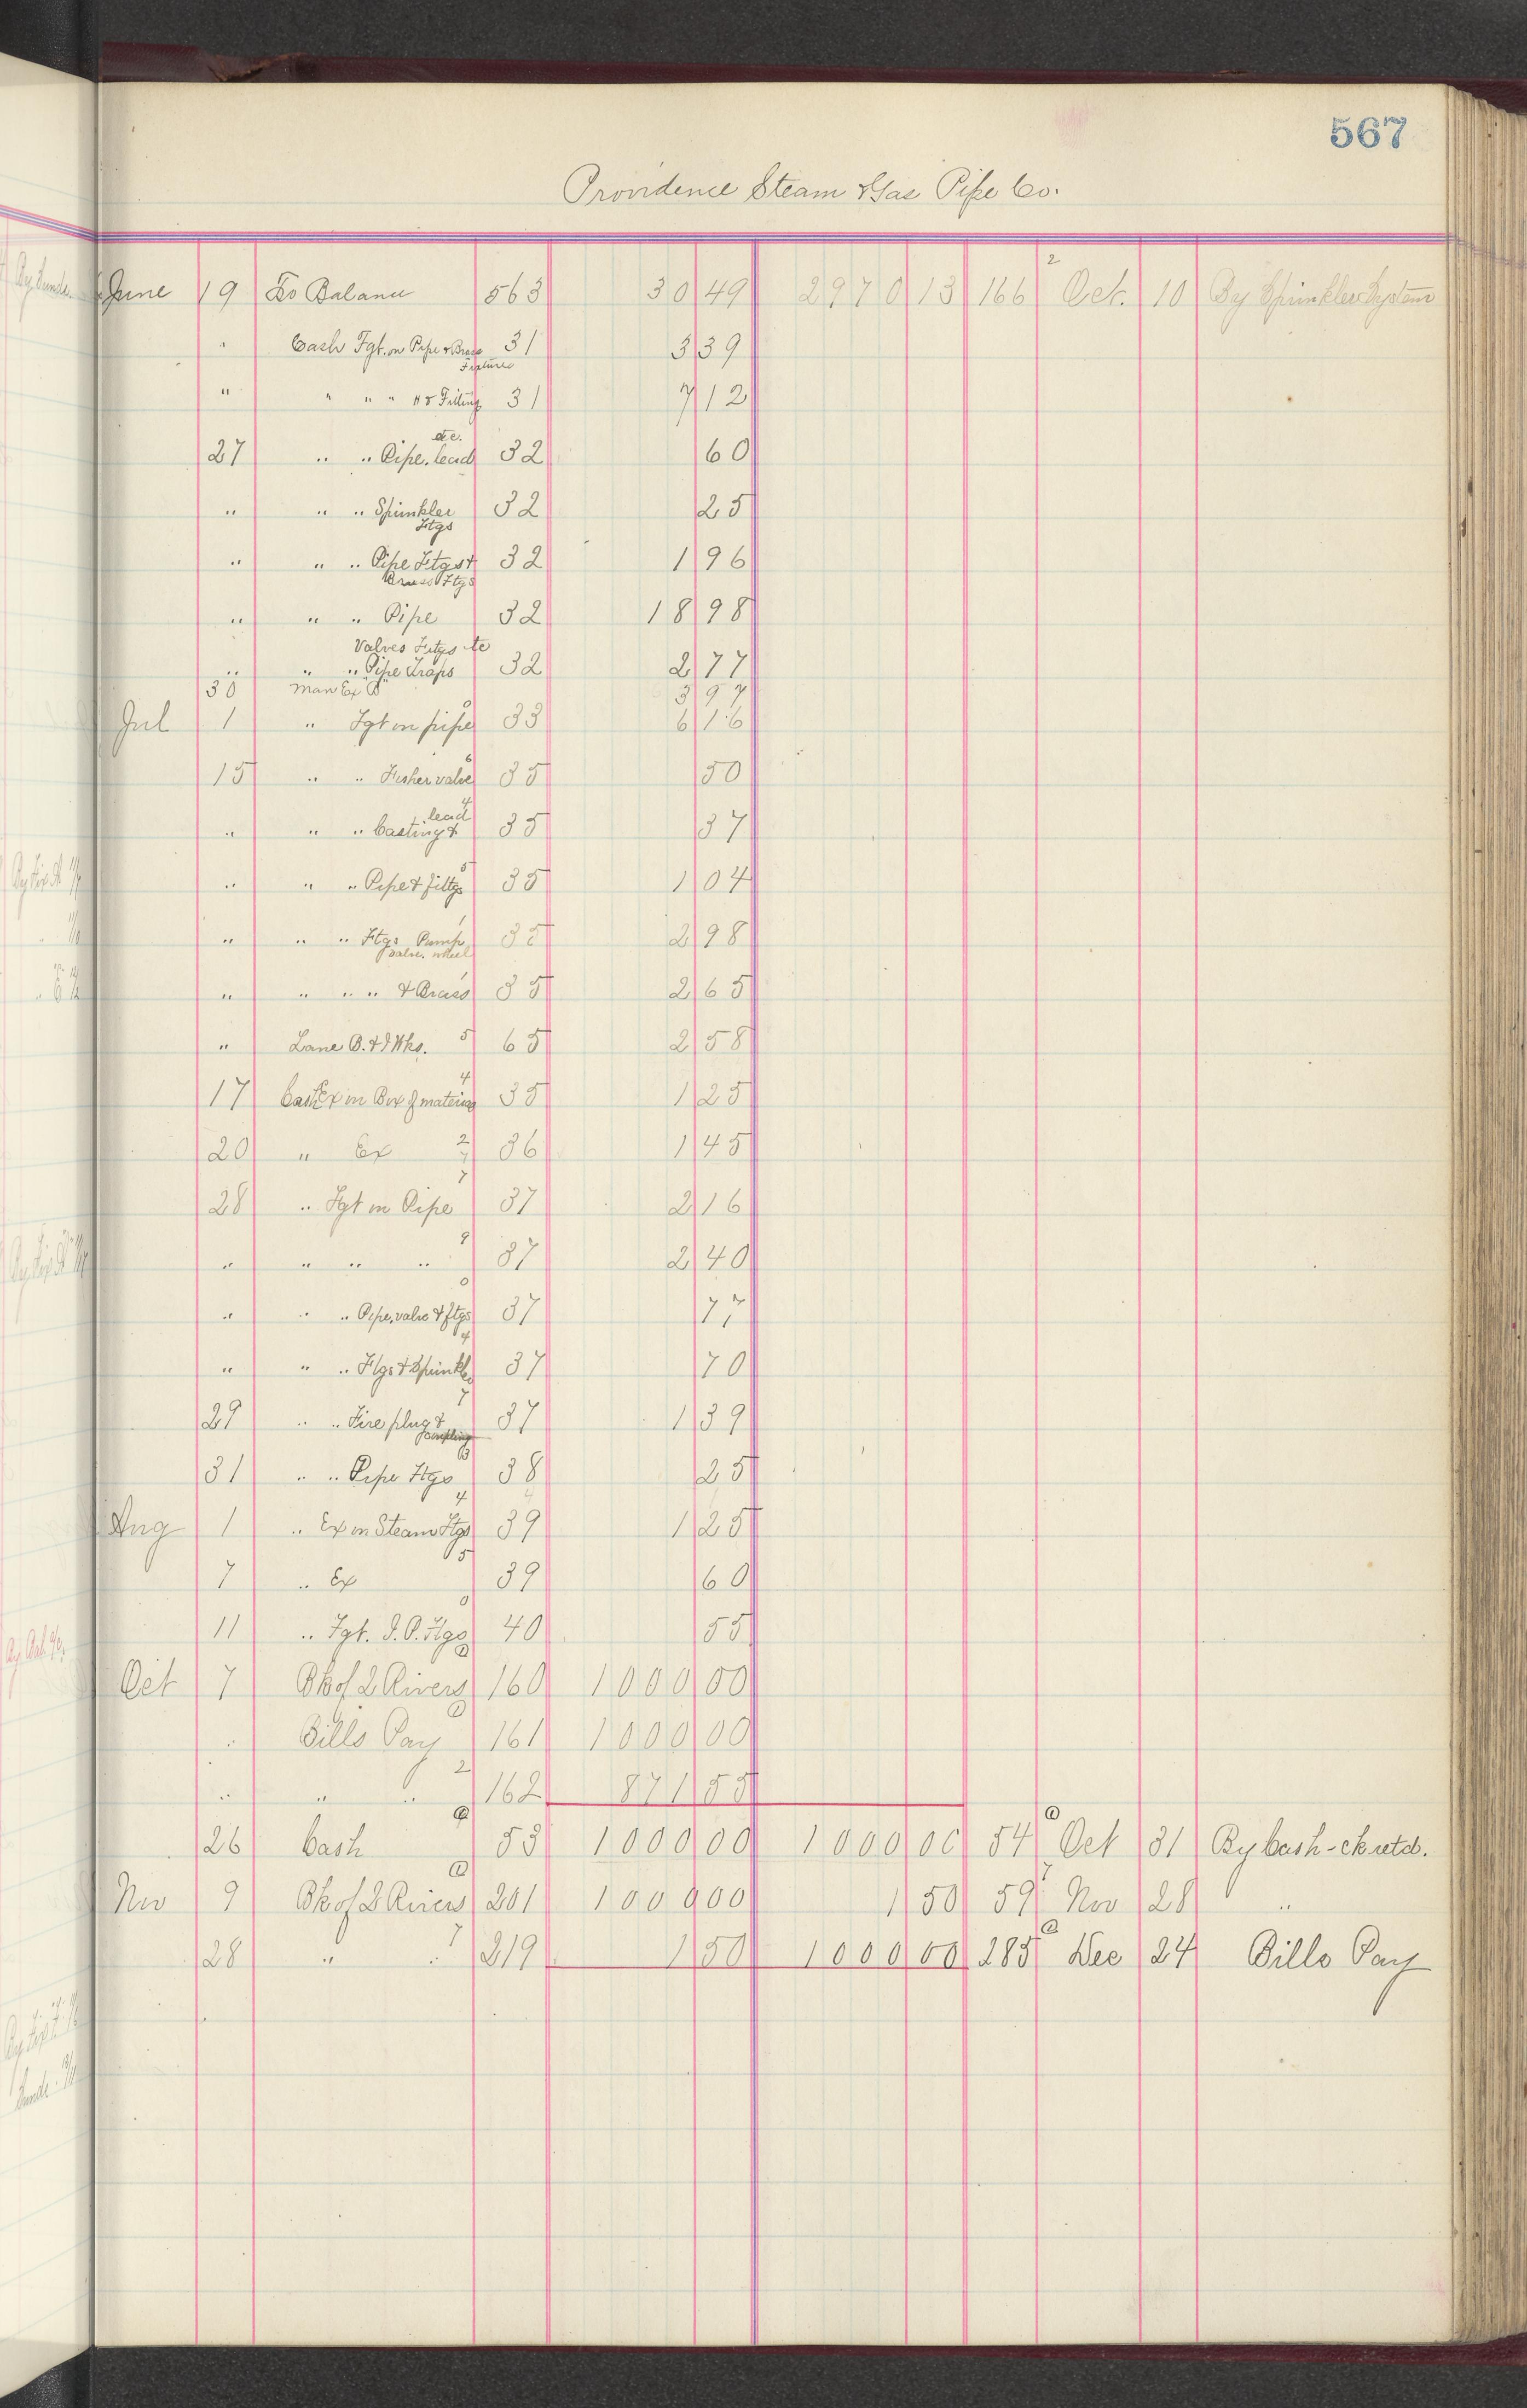 567
Providence Steam & Gas Pipe Co.
June 19 To Balance 563 30 49 2970 13 166 2 Oct. 10 By Sprinkler System
" Cash Fgt. on Pipe & Brass Fixtures 31 3 39
" " " " " & Fitting 31 7 12
27 " " Pipe. lead &c. 32 60
" " " Sprinkler Ftgs 32 25
" " " Pipe Ftgs & Brass Ftgs 32 1 96
" " " Pipe 32 18 98
" " " Valves Ftgs &c Pipe Traps 32 2 77
30 Man Ex B 3 97
Jul 1 " Fgt on pipe 33 6 16
15 " " Fisher valve 35 50
" " " Casting & lead 35 37
" " " Pipe & fittgs 35 1 04
" " " Ftgs Pump valve. wheel 35 2 98
" " " " & Brass 35 2 65
" Lane B. & D Wks. 5 65 2 58
17 Cash Ex on Box of material 4 35 1 25
20 " Ex 36 1 45
28 " Fgt on Pipe 7 37 2 16
" " " " 9 37 2 40
" " " Pipe, valve & ftgs 37 77
" " " Ftgs & Sprinkler 4 37 70
29 " " Fire plug & coupling 7 37 1 39
31 " " Pipe Ftgs 38 25
Aug 1 " Ex on Steam Ftgs 4 39 1 25
7 " Ex 5 39 60
11 " Fgt. I. P. Ftgs 40 55
Oct 7 Bk of 2 Rivers 160 1000 00
" Bills Pay 161 1000 00
" " " 2 162 871 55
26 Cash 53 1000 00 1000 00 54 Oct 31 By Cash - ck retd.
Nov 9 Bk of 2 Rivers 201 1000 00 1 50 59 7 Nov 28 "
28 " " 7 219 1 50 1000 00 285 Dec 24 Bills Pay